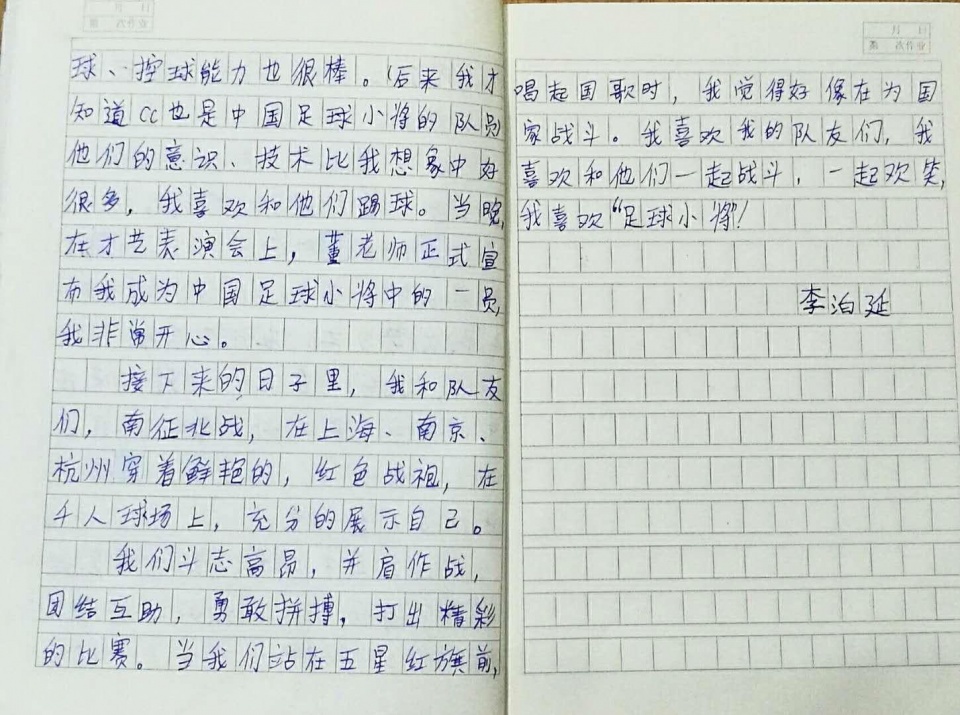 月 日
第 次作业
球、控球能力也很棒。(后来我才
知道CC也是中国足球小将的队员
他们的意识、技术比我想象中好
很多，我喜欢和他们踢球。当晚，
在才艺表演会上，董老师正式宣
布我成为中国足球小将中的一员，
我非常开心。
接下来的日子里，我和队友
们，南征北战，在上海、南京、
杭州穿着鲜艳的，红色战袍，在
千人球场上，充分的展示自己。
我们斗志高昂，并肩作战，
团结互助，勇敢拼搏，打出精彩
的比赛。当我们站在五星红旗前，
月 日
第 次作业
唱起国歌时，我觉得好像在为国
家战斗。我喜欢我的队友们，我
喜欢和他们一起战斗，一起欢笑，
我喜欢“足球小将”！
李泊延